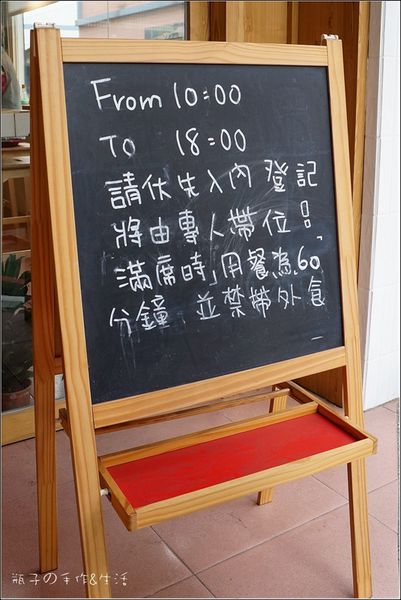 From 10:00
To 18:00
請伙先入內 登記
將由專人帶位!
滿席時,用餐為「60」
分鐘 並禁帶外食
瓶子の手作&生活